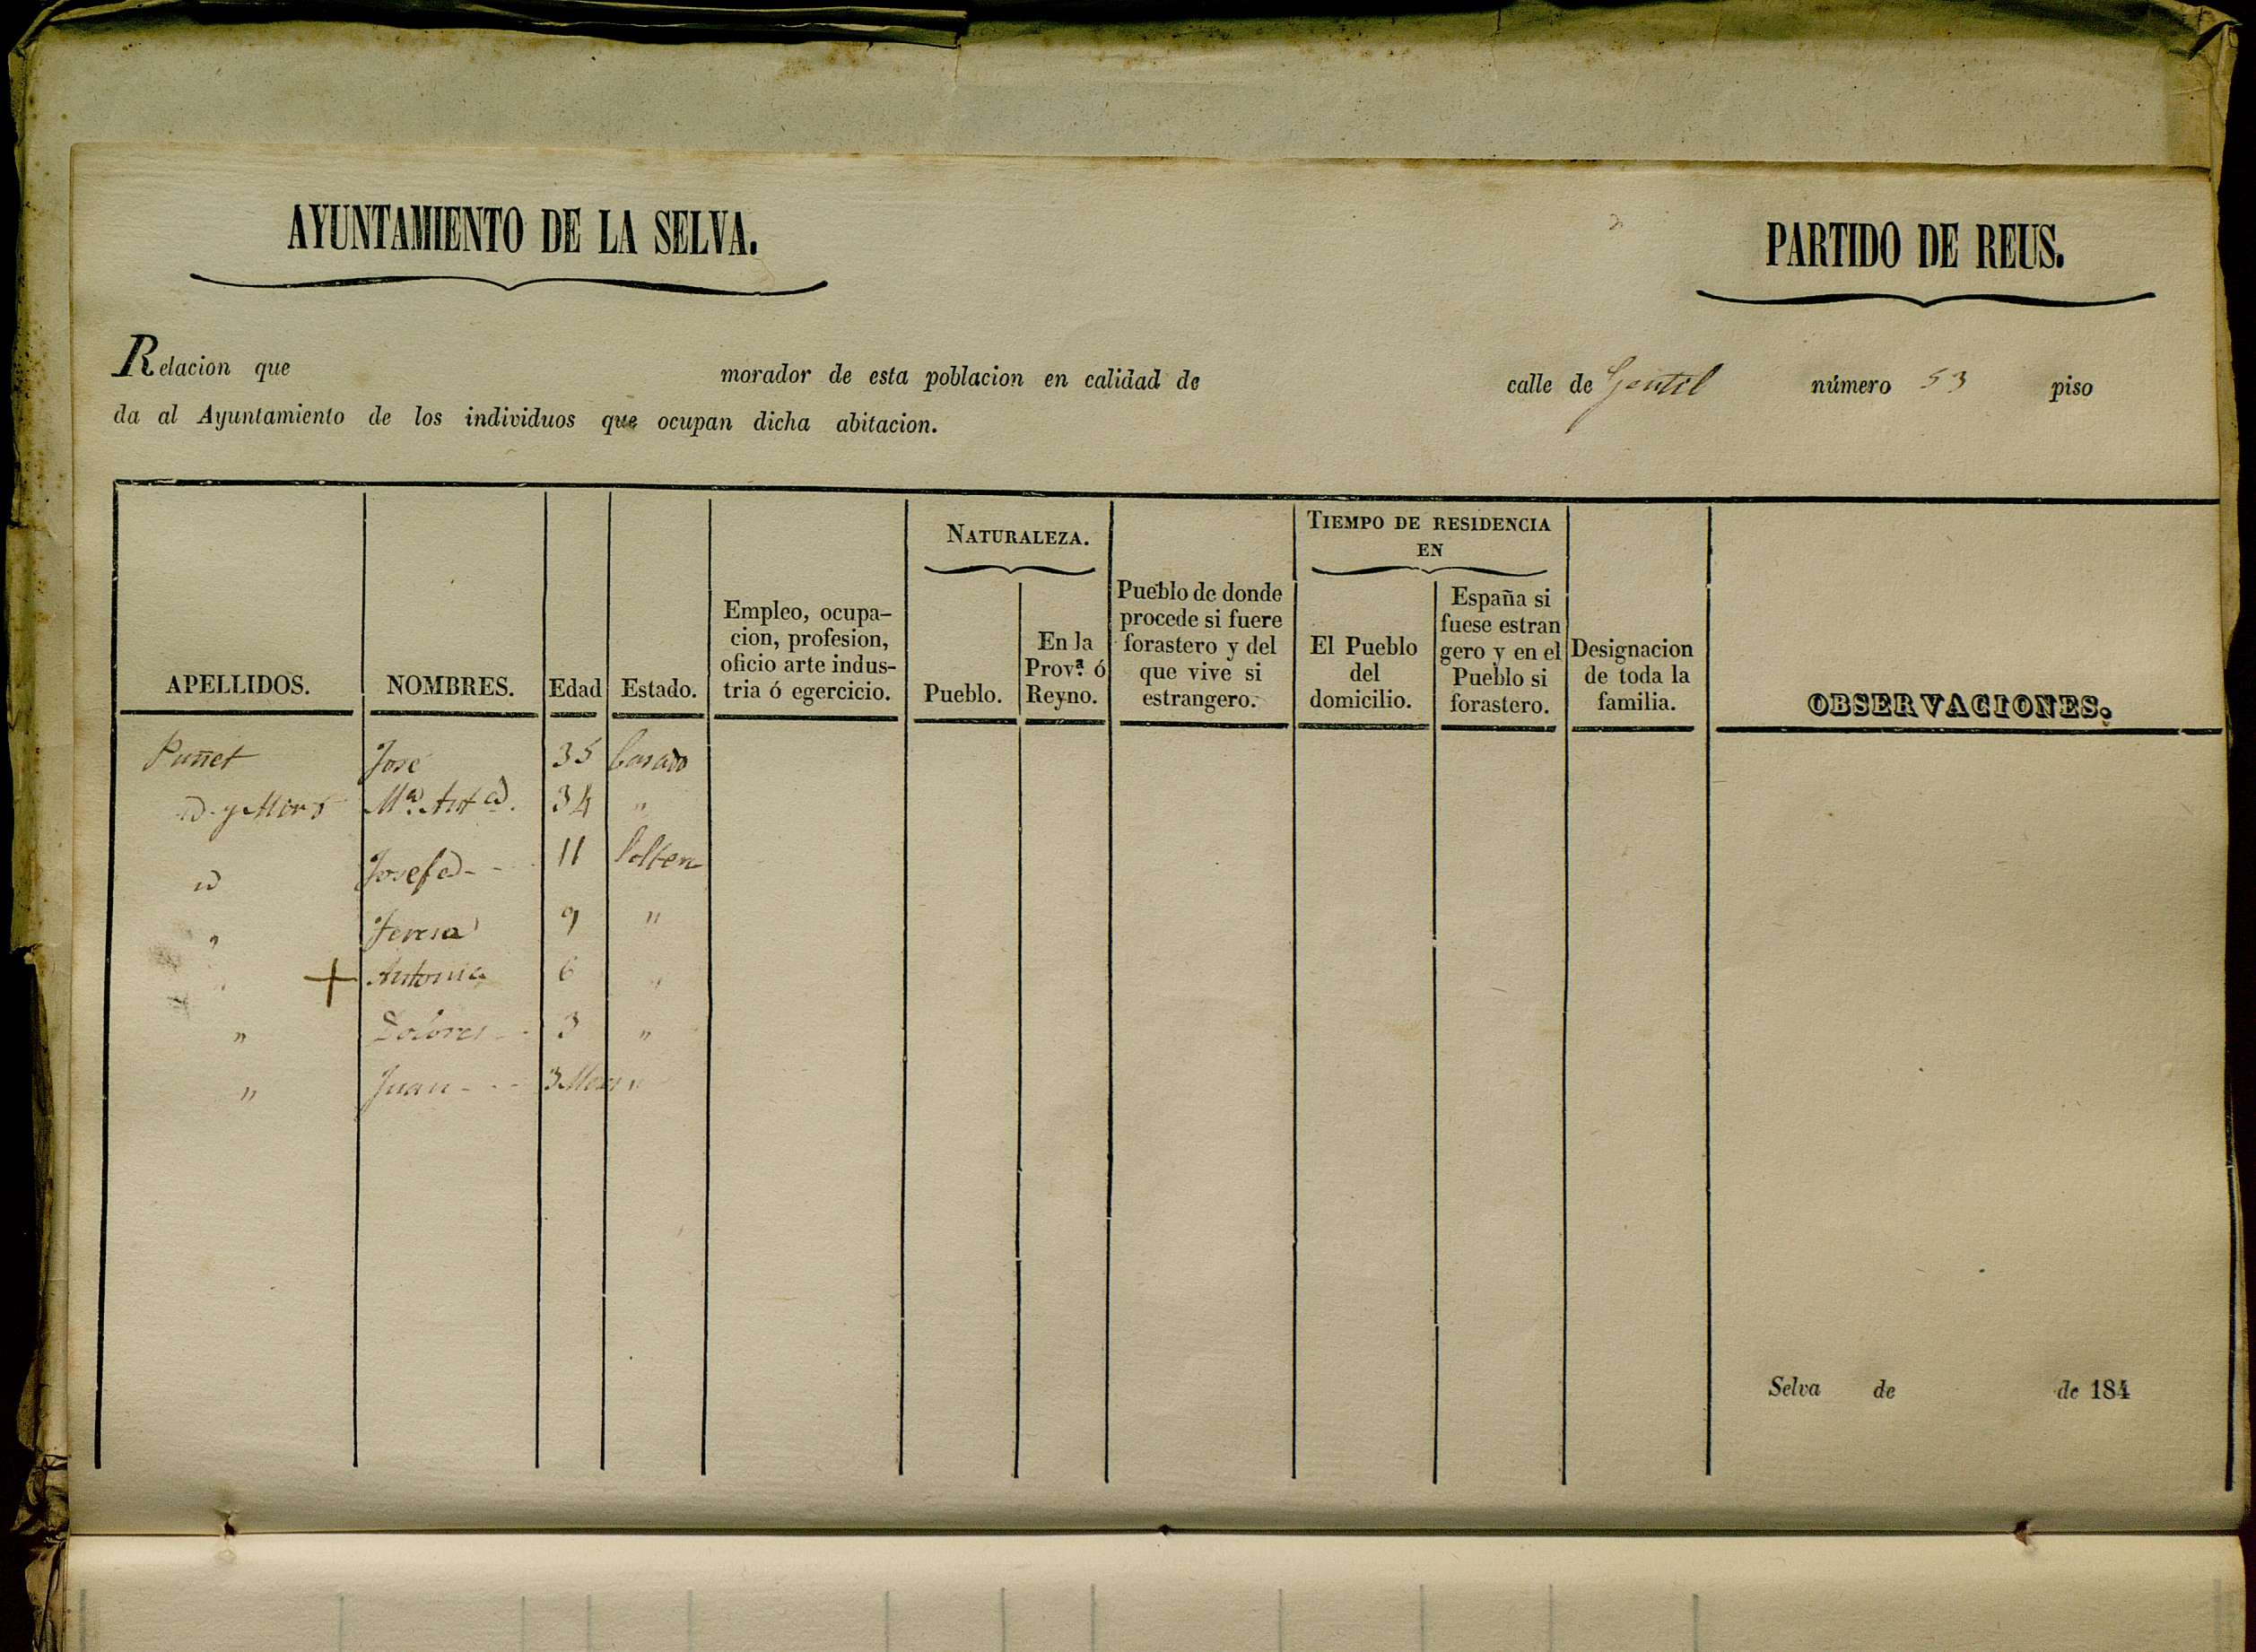 AYUNTAMIENTO DE LA SELVA.
PARTIDO DE REUS.
Relacion que morador de esta poblacion en calidad de calle de Gentil número 53 piso
da al Ayuntamiento de los individuos que ocupan dicha abitacion.
NATURALEZA.
TIEMPO DE RESIDENCIA
EN
APELLIDOS.
NOMBRES.
Edad
Estado.
Empleo, ocupa-
cion, profesion,
oficio arte indus-
tria ó egercicio.
Pueblo.
En la
Prov.ª ó
Reyno.
Pueblo de donde
procede si fuere
forastero y del
que vive si
estrangero.
El Pueblo
del
domicilio.
España si
fuese estran
gero y en el
Pueblo si
forastero.
Designacion
de toda la
familia.
OBSERVACIONES.
Puñet José 35 Casado
id. y Miró Mª. Antª. 34 "
id Josefa - - 11 Solter
" Teresa 9 "
" + Antonia 6 "
" Dolores - - 3 "
" Juan - - - 3 Meses "
Selva de de 184